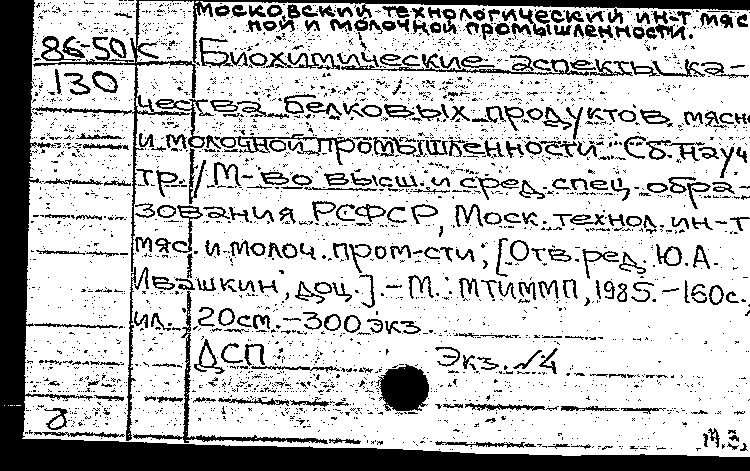 Московский технологический ин-т мяс
ной и молочной промышленности.
86-50К Биохимические аспекты ка-
130
чества белковых продуктов мясн
и молочной промышленности: Сб. науч
тр. / М-во высш. и сред. спец. обра-
зования РСФСР, Моск. технол. ин-т
мяс. и молоч. пром-сти; [Отв. ред. Ю.А.
Ивашкин, доц.]. - М.: МТИММП, 1985. - 160с.,
ил.; 20см. - 300 экз.
ДСП Экз. №4
д
М.З.